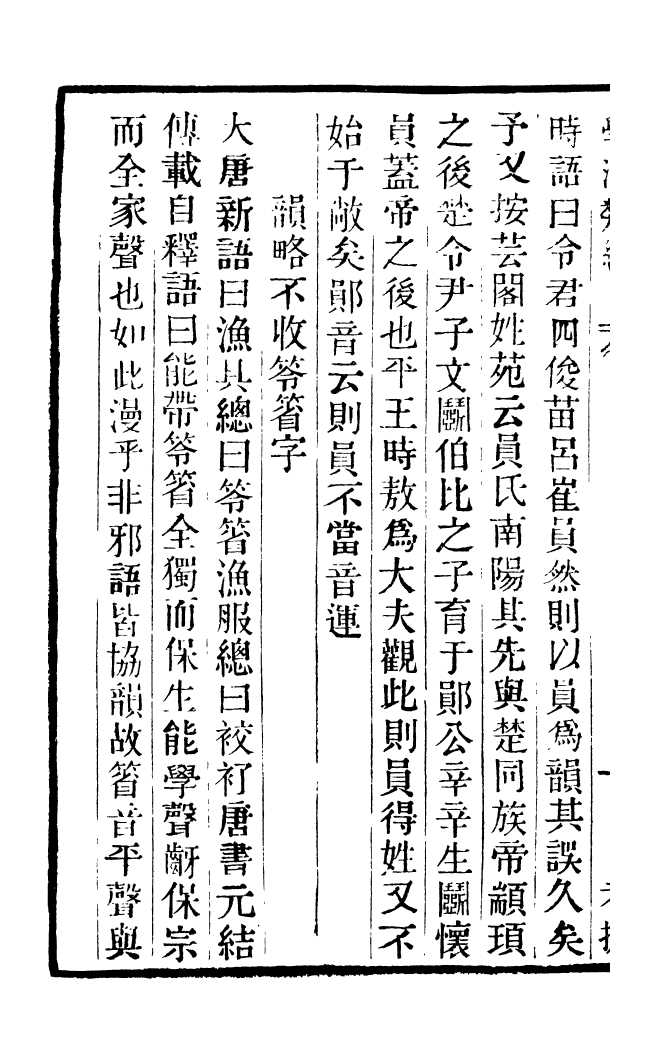 時語曰令君四俊苗呂崔員然則以員爲韻其誤久矣
予又按芸閣姓苑云員氏南陽其先與楚同族帝顓頊
之後楚令尹子文鬭伯比之子育于鄖公辛辛生鬭懷
員蓋帝之後也平王時敖爲大夫觀此則員得姓又不
始于敵矣鄖音云則員不當音運
韻略不收笭箵字
大唐新語曰漁具總曰笭箵漁服總曰衱衤丁唐書元結
傳載自釋語曰能帶笭箵全獨而保生能學聲齖保宗
而全家聲也如此漫乎非邪語皆協韻故箵音平聲與